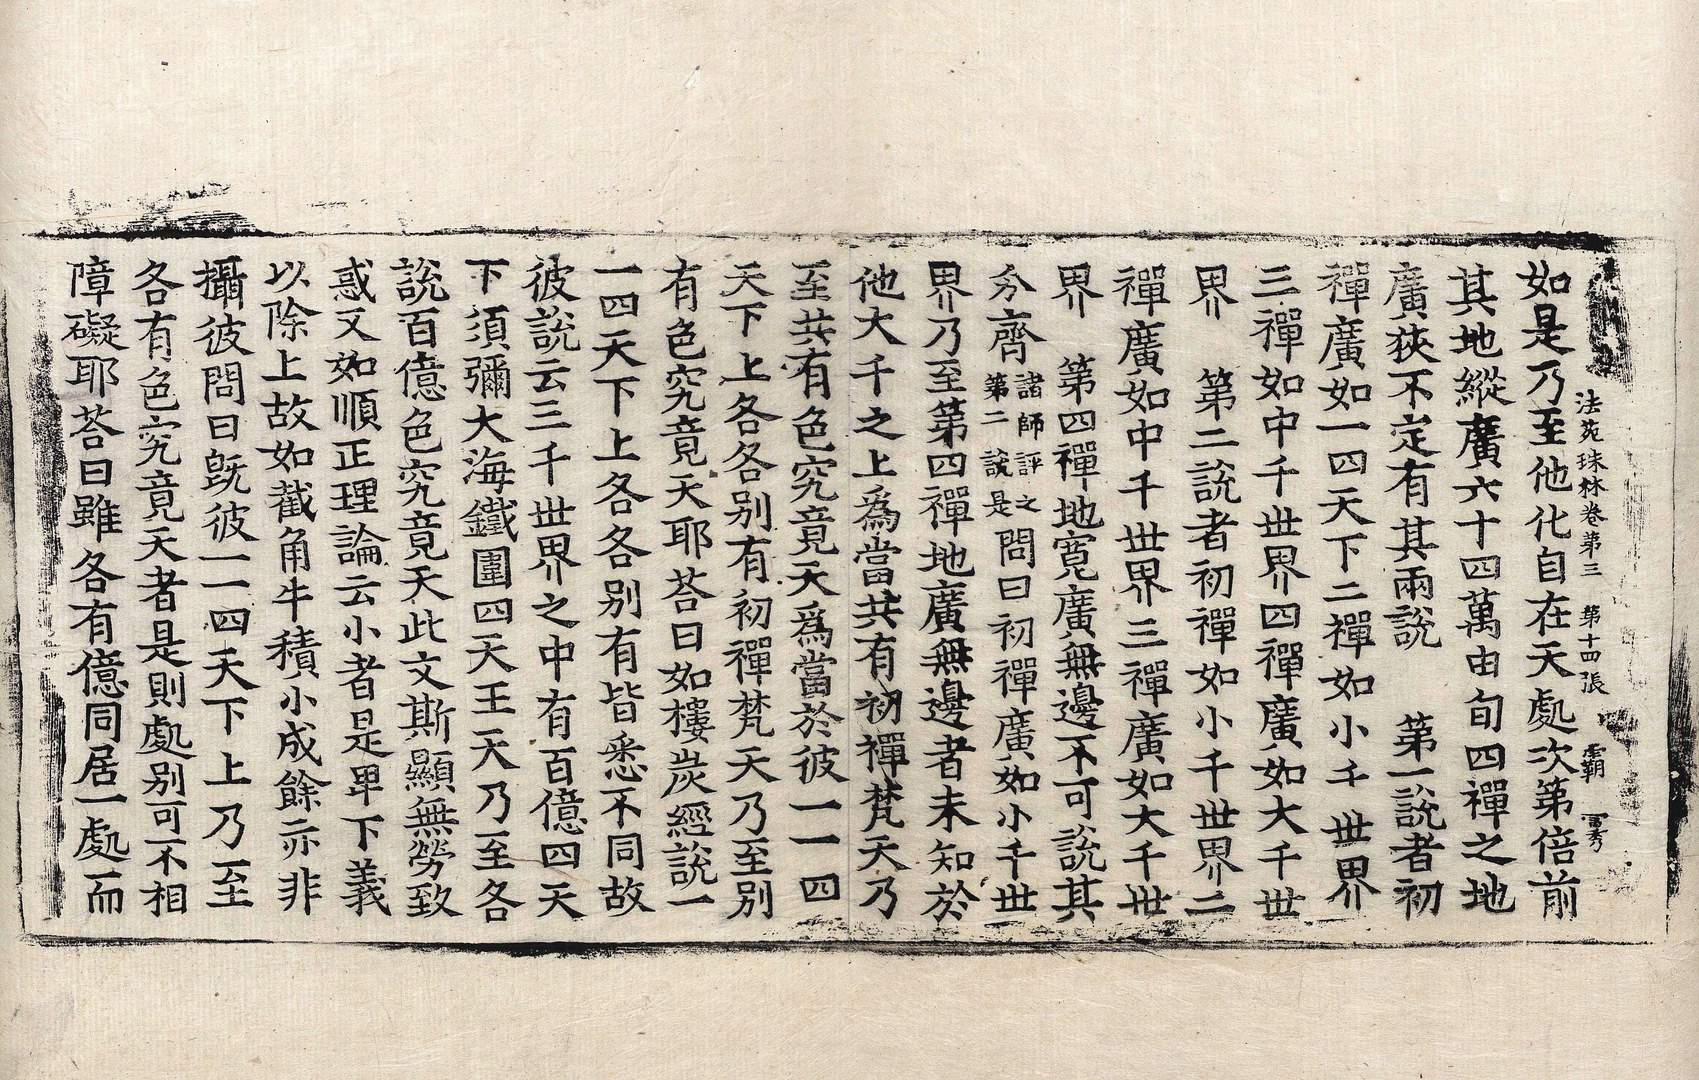 法苑珠林卷第三　第十四張　霸　富秀
如是乃至他化自在天處次第倍前
其地縱廣六十四萬由旬四禪之地
廣狹不定有其兩說　第一說者初
禪廣如一四天下二禪如小千世界
三禪如中千世界四禪廣如大千世
界　第二說者初禪如小千世界二
禪廣如中千世界三禪廣如大千世
界　第四禪地寬廣無邊不可說其
分齊諸師評之第二說是問曰初禪廣如小千世
界乃至第四禪地廣無邊者未知於
他大千之上為當共有初禪梵天乃
至共有色究竟天爲當於彼一一四
天下上各各別有初禪梵天乃至別
有色究竟天耶荅曰如樓炭經說一
一四天下上各各別有皆悉不同故
彼說云三千世界之中有百億四天
下須彌大海鐵圍四天王天乃至各
說百億色究竟天此文斯顯無勞致
惑又如順正理論云小者是卑下義
以除上故如截角牛積小成餘亦非
攝彼問曰旣彼一一四天下上乃至
各有色究竟天者是則處別可不相
障礙耶荅曰雖各有億同居一處而